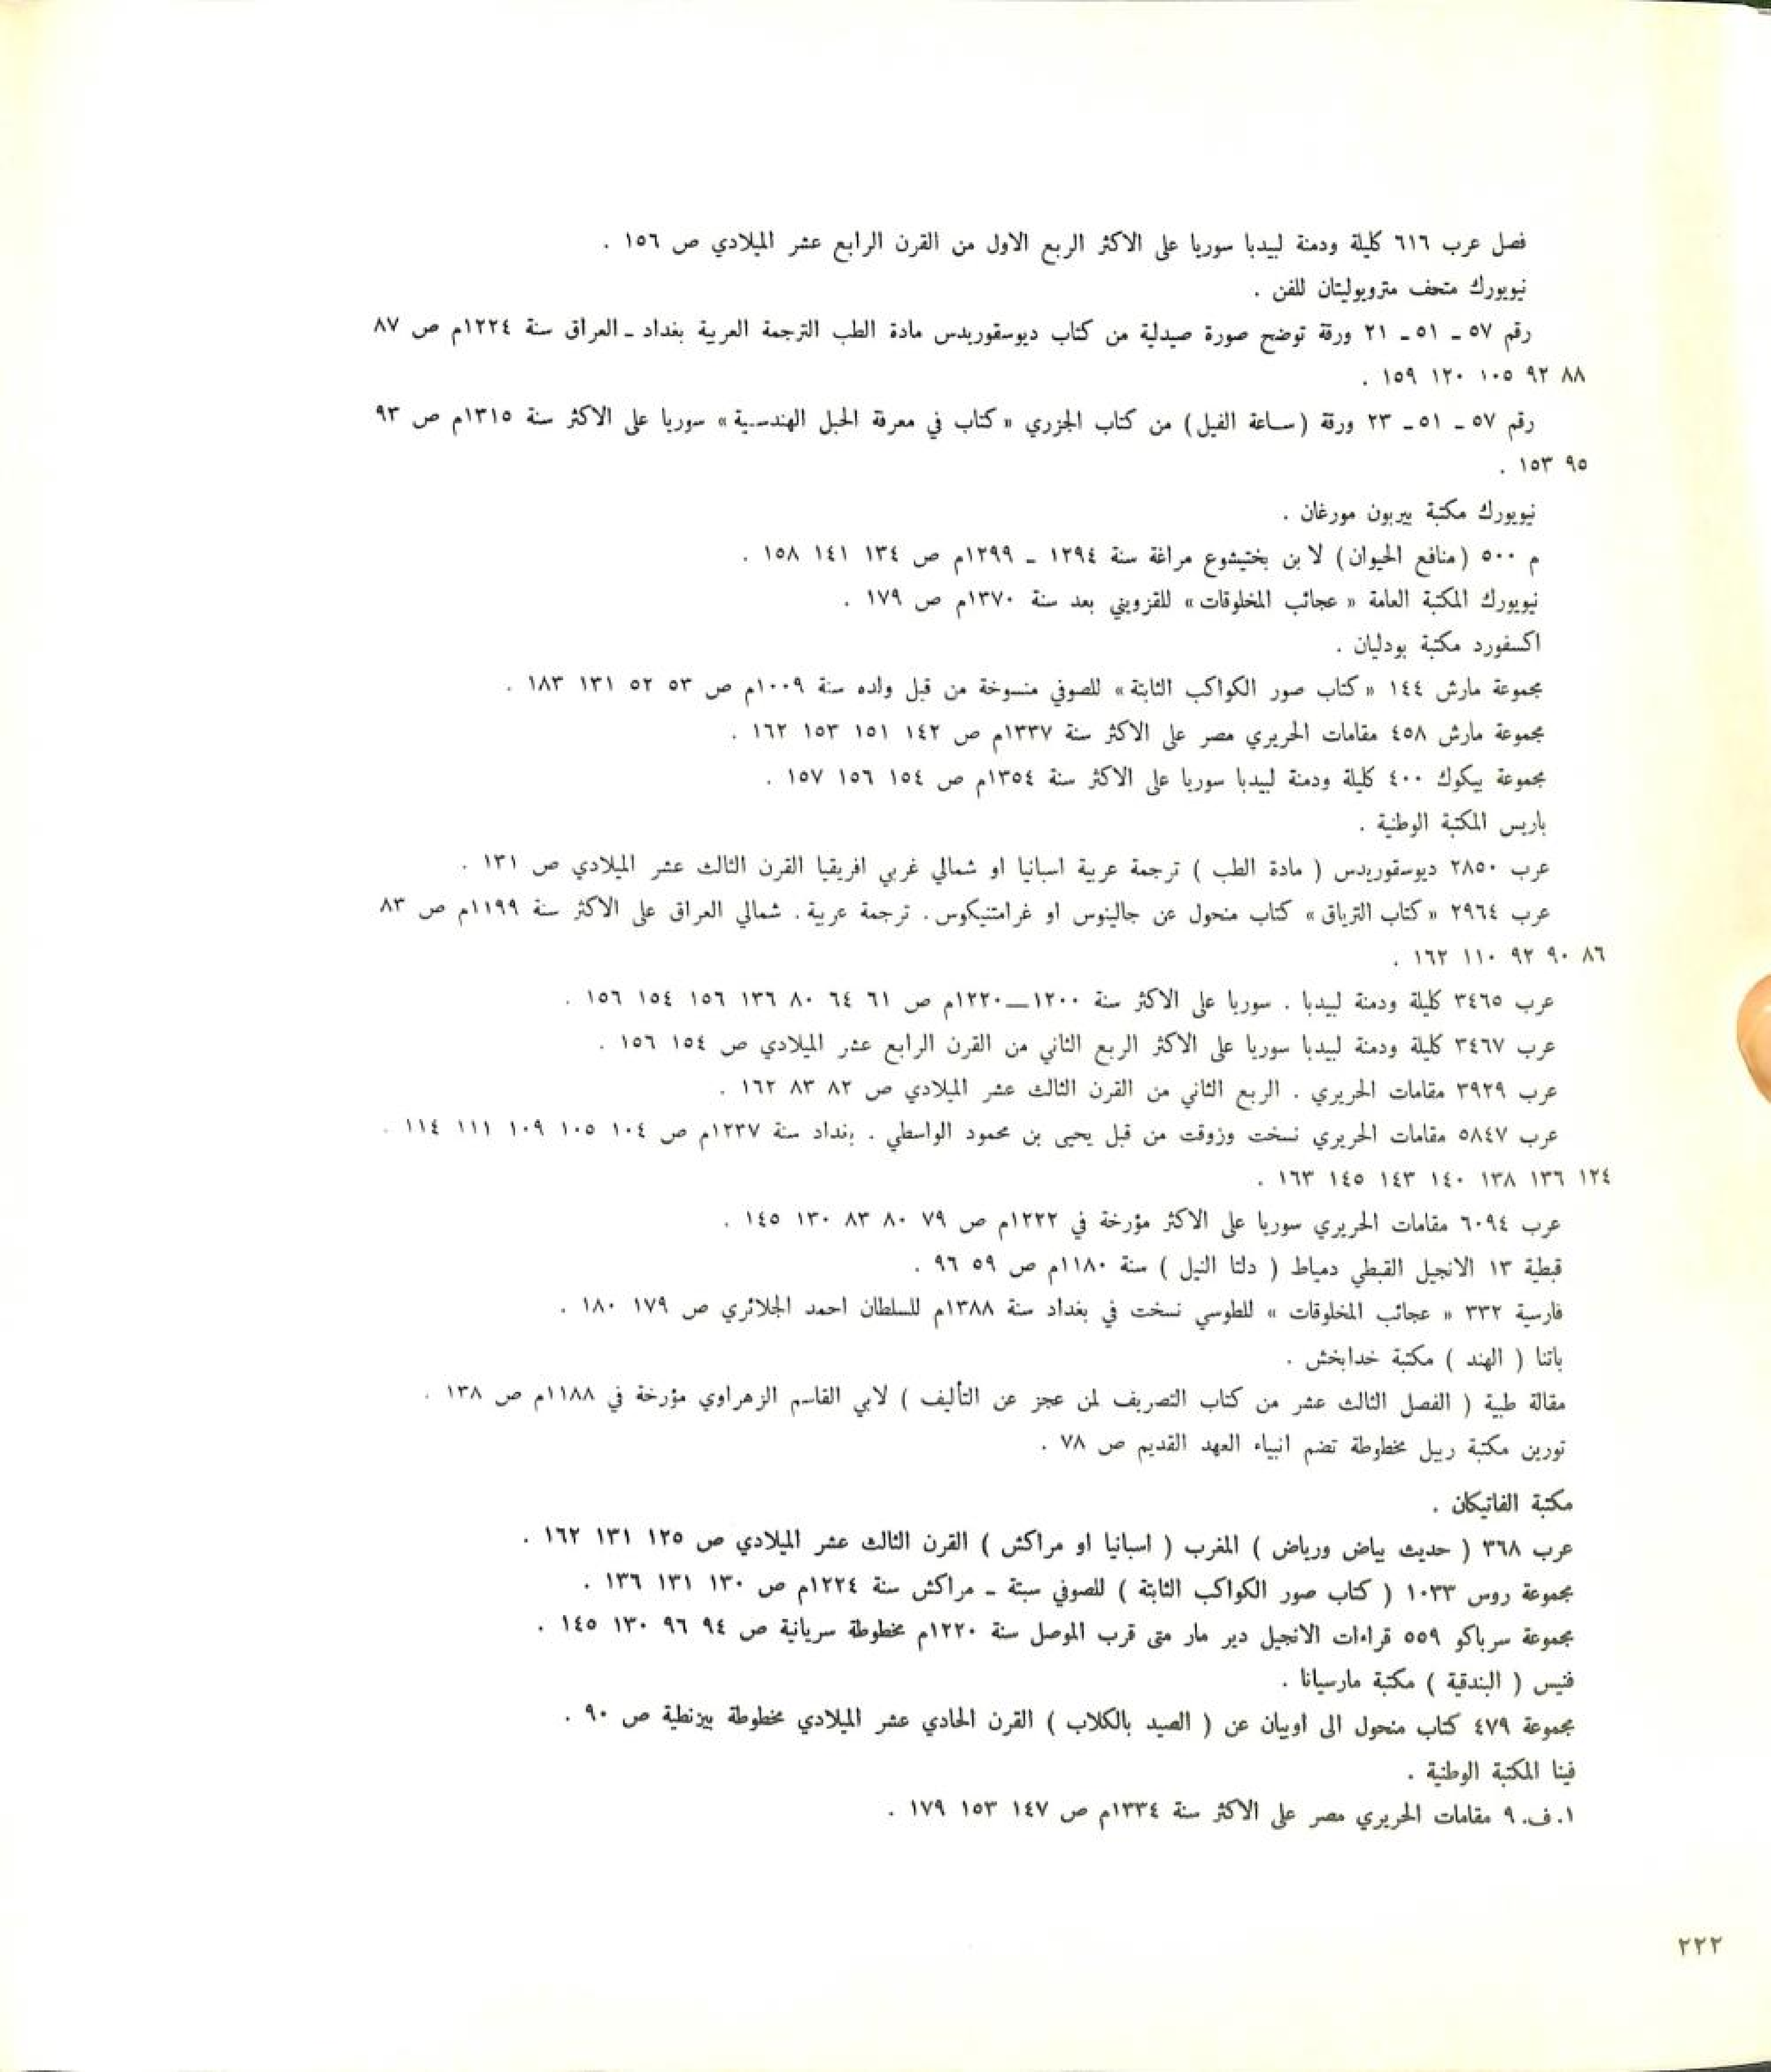 فصل عرب ٦١٦ كليلة ودمنة لبيدبا سوريا على الاكثر الربع الاول من القرن الرابع عشر الميلادي ص ١٥٦ .
نيويورك متحف متروبوليتان للفن .
رقم ٥٧ ـ ٥١ ـ ٢١ ورقة توضح صورة صيدلية من كتاب ديوسقوريدس مادة الطب الترجمة العربية بغداد ـ العراق سنة ١٢٢٤م ص ٨٧
٨٨ ٩٢ ١٠٥ ١٢٠ ١٥٩ .
رقم ٥٧ ـ ٥١ ـ ٢٣ ورقة (ساعة الفيل) من كتاب الجزري « كتاب في معرفة الحيل الهندسية » سوريا على الاكثر سنة ١٣١٥م ص ٩٣
٩٥ ١٥٣ .
نيويورك مكتبة بيربون مورغان .
م ٥٠٠ (منافع الحيوان) لا بن بختيشوع مراغة سنة ١٢٩٤ ـ ١٢٩٩م ص ١٣٤ ١٤١ ١٥٨ .
نيويورك المكتبة العامة « عجائب المخلوقات » للقزويني بعد سنة ١٣٧٠م ص ١٧٩ .
اكسفورد مكتبة بودليان .
مجموعة مارش ١٤٤ « كتاب صور الكواكب الثابتة » للصوفي منسوخة من قبل ولده سنة ١٠٠٩م ص ٥٣ ٥٢ ١٣١ ١٨٣ .
مجموعة مارش ٤٥٨ مقامات الحريري مصر على الاكثر سنة ١٣٣٧م ص ١٤٢ ١٥١ ١٥٣ ١٦٢ .
مجموعة بيكوك ٤٠٠ كليلة ودمنة لبيدبا سوريا على الاكثر سنة ١٣٥٤م ص ١٥٤ ١٥٦ ١٥٧ .
باريس المكتبة الوطنية .
عرب ٢٨٥٠ ديوسقوريدس ( مادة الطب ) ترجمة عربية اسبانيا او شمالي غربي افريقيا القرن الثالث عشر الميلادي ص ١٣١ .
عرب ٢٩٦٤ « كتاب الترياق » كتاب منحول عن جالينوس او غرامتنيكوس . ترجمة عربية . شمالي العراق على الاكثر سنة ١١٩٩م ص ٨٣
٨٦ ٩٠ ٩٢ ١١٠ ١٦٢ .
عرب ٣٤٦٥ كليلة ودمنة لبيدبا . سوريا على الاكثر سنة ١٢٠٠—١٢٢٠م ص ٦١ ٦٤ ٨٠ ١٣٦ ١٥٦ ١٥٤ ١٥٦ .
عرب ٣٤٦٧ كليلة ودمنة لبيدبا سوريا على الاكثر الربع الثاني من القرن الرابع عشر الميلادي ص ١٥٤ ١٥٦ .
عرب ٣٩٢٩ مقامات الحريري . الربع الثاني من القرن الثالث عشر الميلادي ص ٨٢ ٨٣ ١٦٢ .
عرب ٥٨٤٧ مقامات الحريري نسخت وزوقت من قبل يحيى بن محمود الواسطي . بغداد سنة ١٢٣٧م ص ١٠٤ ١٠٥ ١٠٩ ١١١ ١١٤ .
١٢٤ ١٣٦ ١٣٨ ١٤٠ ١٤٣ ١٤٥ ١٦٣ .
عرب ٦٠٩٤ مقامات الحريري سوريا على الاكثر مؤرخة في ١٢٢٢م ص ٧٩ ٨٠ ٨٣ ١٣٠ ١٤٥ .
قبطية ١٣ الانجيل القبطي دمياط ( دلتا النيل ) سنة ١١٨٠م ص ٥٩ ٩٦ .
فارسية ٣٣٢ « عجائب المخلوقات » للطوسي نسخت في بغداد سنة ١٣٨٨م للسلطان احمد الجلائري ص ١٧٩ ١٨٠ .
باتنا ( الهند ) مكتبة خدابخش .
مقالة طبية ( الفصل الثالث عشر من كتاب التصريف لمن عجز عن التأليف ) لابي القاسم الزهراوي مؤرخة في ١١٨٨م ص ١٣٨ .
تورين مكتبة ريبل مخطوطة تضم انبياء العهد القديم ص ٧٨ .
مكتبة الفاتيكان .
عرب ٣٦٨ ( حديث بياض ورياض ) المغرب ( اسبانيا او مراكش ) القرن الثالث عشر الميلادي ص ١٢٥ ١٣١ ١٦٢ .
مجموعة روس ١٠٣٣ ( كتاب صور الكواكب الثابتة ) للصوفي سبتة ـ مراكش سنة ١٢٢٤م ص ١٣٠ ١٣١ ١٣٦ .
مجموعة سرياكو ٥٥٩ قراءات الانجيل دير مار متى قرب الموصل سنة ١٢٢٠م مخطوطة سريانية ص ٩٤ ٩٦ ١٣٠ ١٤٥ .
فنيس ( البندقية ) مكتبة مارسيانا .
مجموعة ٤٧٩ كتاب منحول الى اوبيان عن ( الصيد بالكلاب ) القرن الحادي عشر الميلادي مخطوطة بيزنطية ص ٩٠ .
فينا المكتبة الوطنية .
١. ف. ٩ مقامات الحريري مصر على الاكثر سنة ١٣٣٤م ص ١٤٧ ١٥٣ ١٧٩ .
٢٢٢